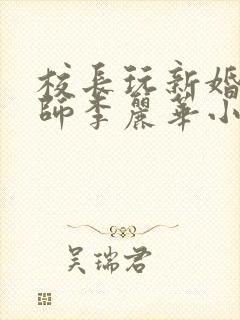 校長玩新婚
師李麗華小
吴瑞君